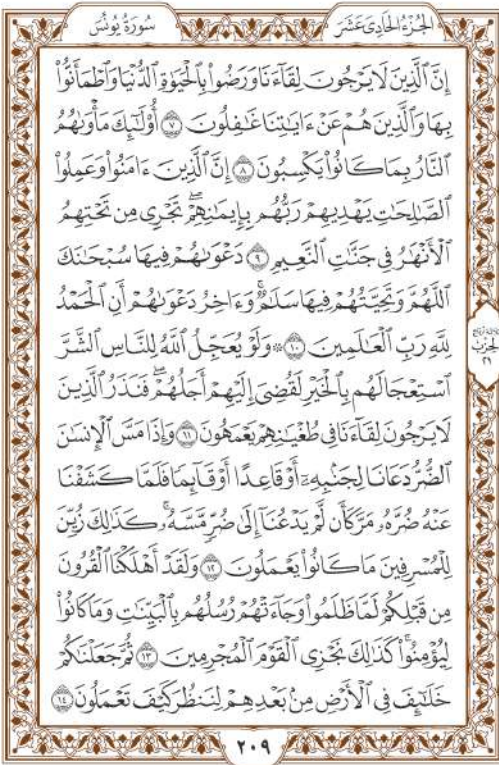 سُورَةُ يُونُسَ
الجُزْءُ الحَادِي عَشَرَ
إِنَّ ٱلَّذِينَ لَا يَرْجُونَ لِقَآءَنَا وَرَضُوا۟ بِٱلْحَيَوٰةِ ٱلدُّنْيَا وَٱطْمَأَنُّوا۟
بِهَا وَٱلَّذِينَ هُمْ عَنْ ءَايَـٰتِنَا غَـٰفِلُونَ ٧ أُو۟لَـٰٓئِكَ مَأْوَىٰهُمُ
ٱلنَّارُ بِمَا كَانُوا۟ يَكْسِبُونَ ٨ إِنَّ ٱلَّذِينَ ءَامَنُوا۟ وَعَمِلُوا۟
ٱلصَّـٰلِحَـٰتِ يَهْدِيهِمْ رَبُّهُم بِإِيمَـٰنِهِمْ ۖ تَجْرِى مِن تَحْتِهِمُ
ٱلْأَنْهَـٰرُ فِى جَنَّـٰتِ ٱلنَّعِيمِ ٩ دَعْوَىٰهُمْ فِيهَا سُبْحَـٰنَكَ
ٱللَّهُمَّ وَتَحِيَّتُهُمْ فِيهَا سَلَـٰمٌ ۚ وَءَاخِرُ دَعْوَىٰهُمْ أَنِ ٱلْحَمْدُ
لِلَّهِ رَبِّ ٱلْعَـٰلَمِينَ ١٠ ۞ وَلَوْ يُعَجِّلُ ٱللَّهُ لِلنَّاسِ ٱلشَّرَّ
ٱسْتِعْجَالَهُم بِٱلْخَيْرِ لَقُضِىَ إِلَيْهِمْ أَجَلُهُمْ ۖ فَنَذَرُ ٱلَّذِينَ
لَا يَرْجُونَ لِقَآءَنَا فِى طُغْيَـٰنِهِمْ يَعْمَهُونَ ١١ وَإِذَا مَسَّ ٱلْإِنسَـٰنَ
ٱلضُّرُّ دَعَانَا لِجَنۢبِهِۦٓ أَوْ قَاعِدًا أَوْ قَآئِمًا فَلَمَّا كَشَفْنَا
عَنْهُ ضُرَّهُۥ مَرَّ كَأَن لَّمْ يَدْعُنَآ إِلَىٰ ضُرٍّ مَّسَّهُۥ ۚ كَذَٰلِكَ زُيِّنَ
لِلْمُسْرِفِينَ مَا كَانُوا۟ يَعْمَلُونَ ١٢ وَلَقَدْ أَهْلَكْنَا ٱلْقُرُونَ
مِن قَبْلِكُمْ لَمَّا ظَلَمُوا۟ ۙ وَجَآءَتْهُمْ رُسُلُهُم بِٱلْبَيِّنَـٰتِ وَمَا كَانُوا۟
لِيُؤْمِنُوا۟ ۚ كَذَٰلِكَ نَجْزِى ٱلْقَوْمَ ٱلْمُجْرِمِينَ ١٣ ثُمَّ جَعَلْنَـٰكُمْ
خَلَـٰٓئِفَ فِى ٱلْأَرْضِ مِنۢ بَعْدِهِمْ لِنَنظُرَ كَيْفَ تَعْمَلُونَ ١٤
الحِزْب
٢١
٢٠٩